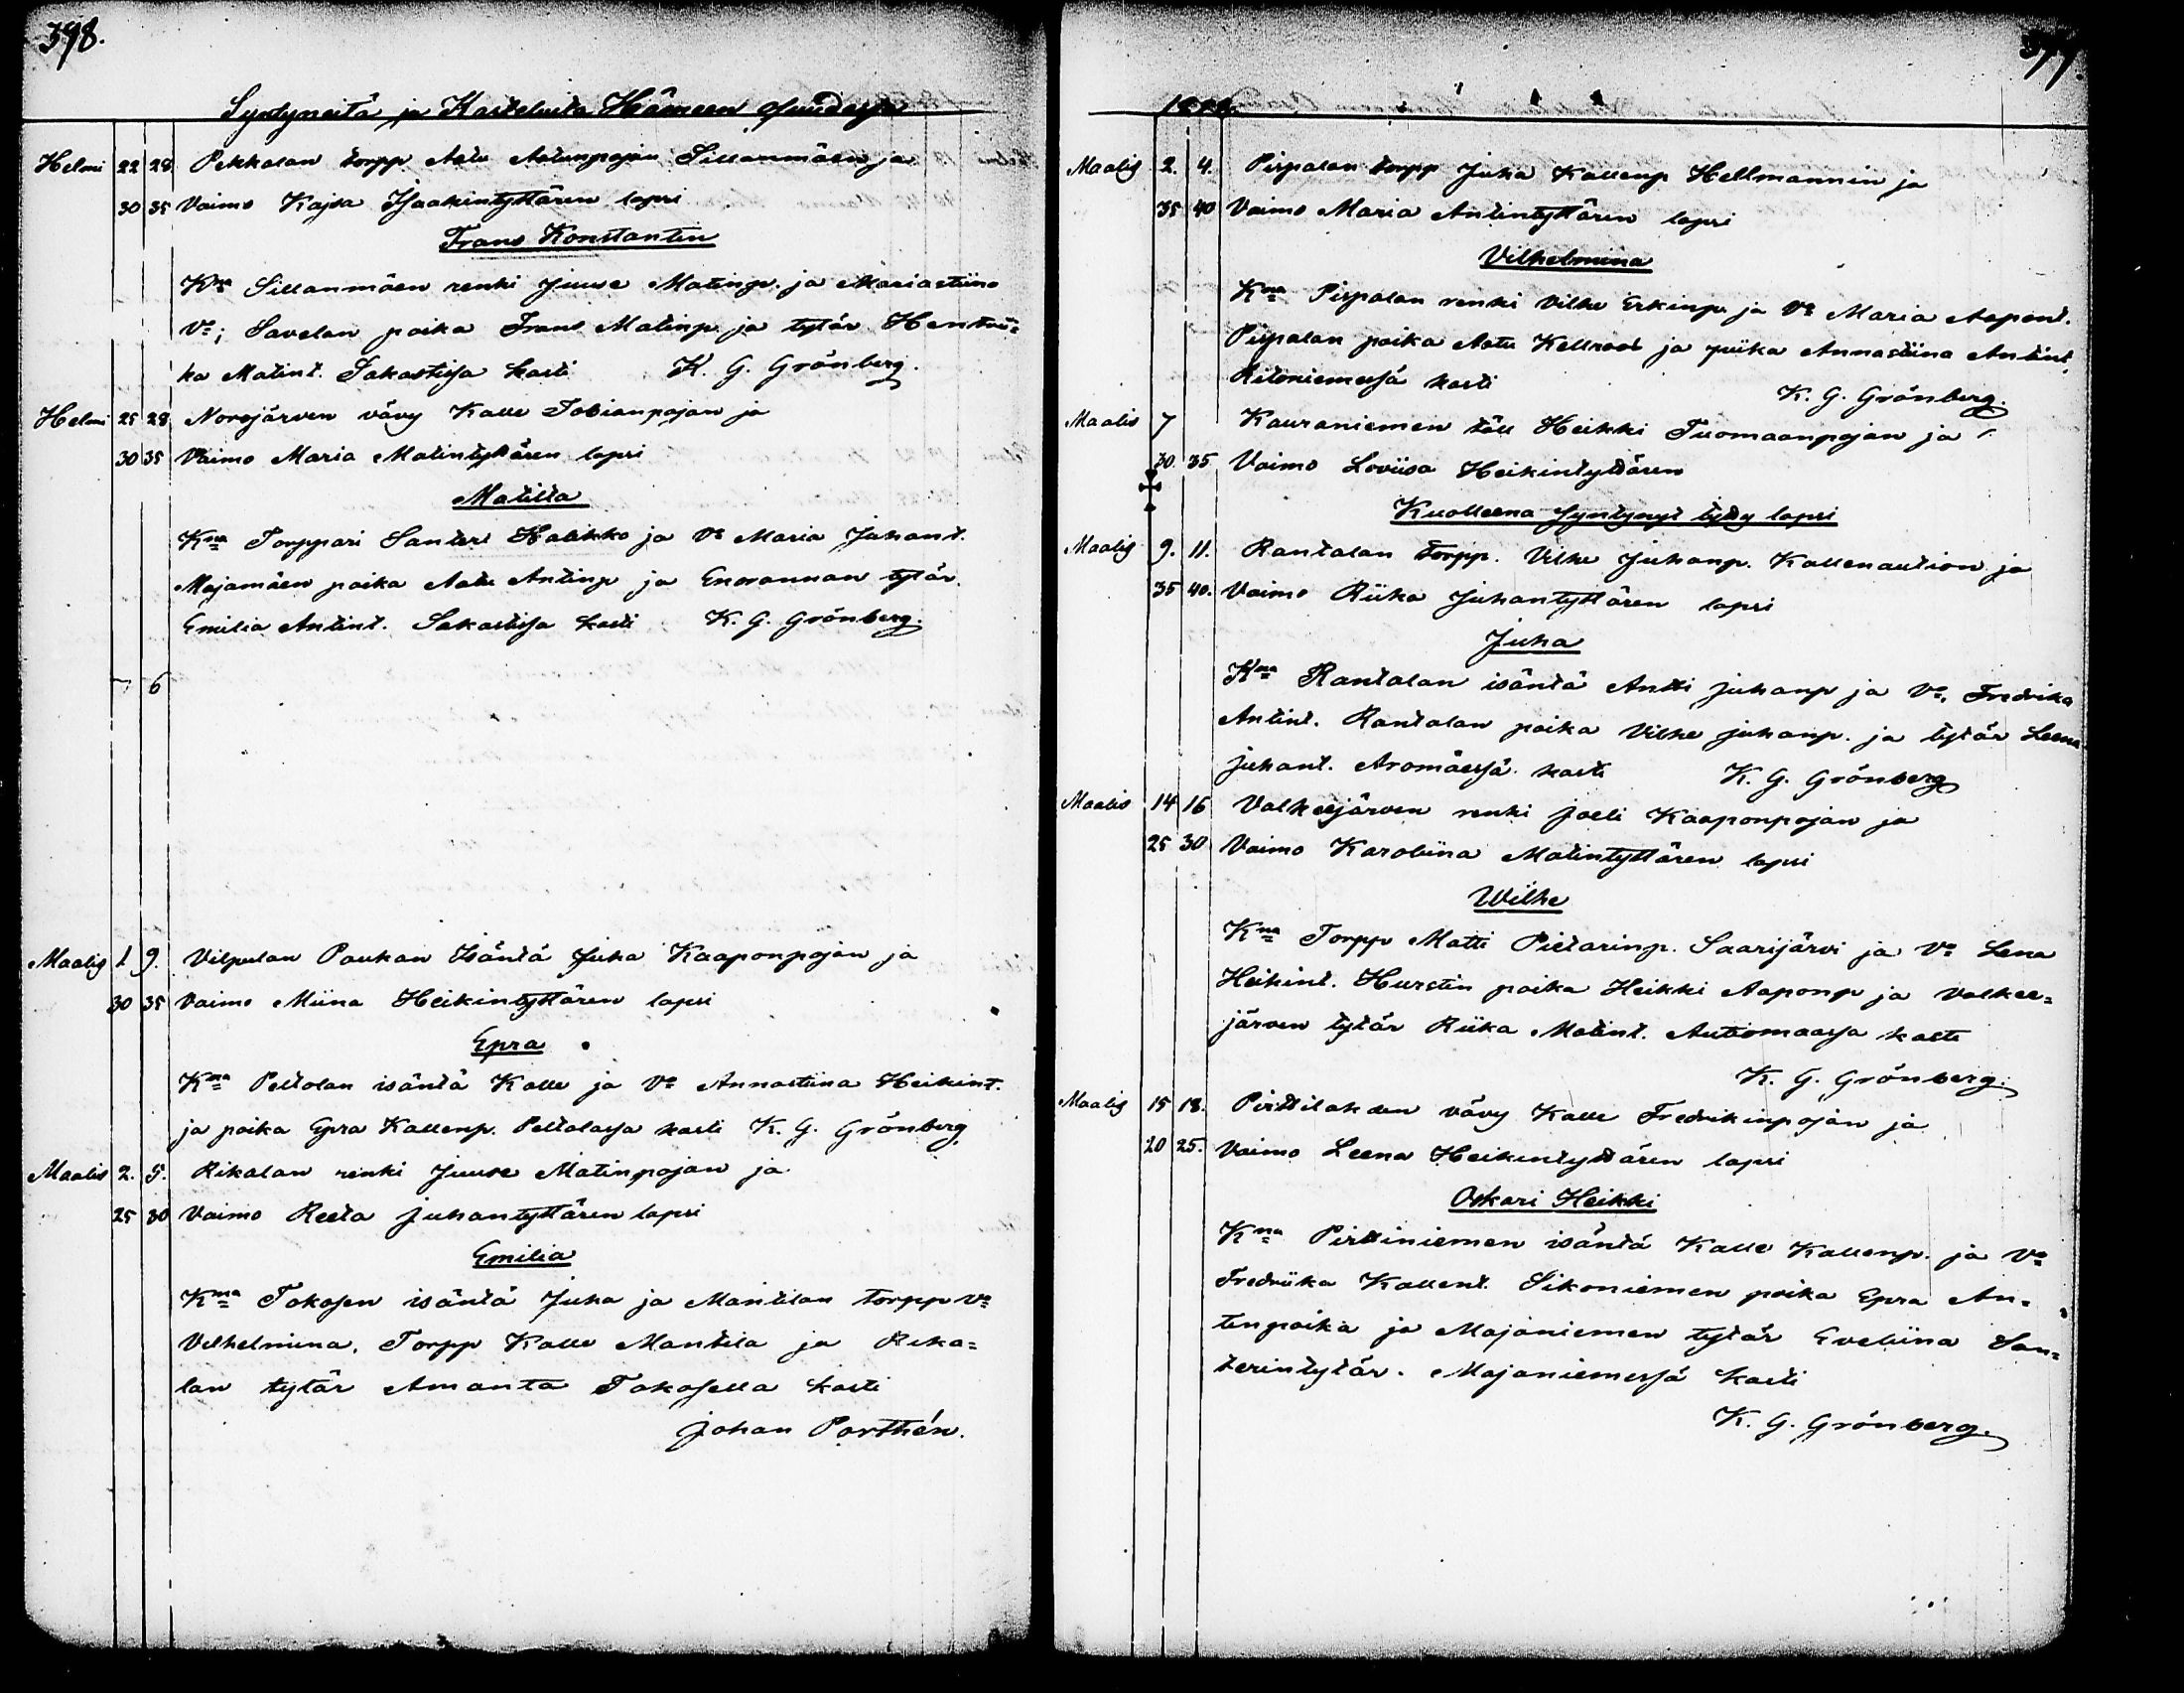 398.
Syntyneitä ja Kasteluita Hämeen
Helmi 22 28 Pekkalan torpp. Aatu Aatunpojan Sillanmäen ja
30 35 Vaimo Kajsa Isaakintyttären lapsi
Frans Konstantin
Kna Sillanmäen renki Juuse Matinp. ja Mariastiina
Vo; Savelan poika Frans Matinp. ja tytär Hentrii=
ka Matint. Sakastissa kasti K. G. Grönberg.
Helmi 25 28 Norojärven vävy Kalle Tobianpojan ja
30 35 Vaimo Maria Matintyttären lapsi
Matilta
Kna Torppari Santeri Halikko ja Vo Maria Juhant.
Majamäen poika Aatu Antinp ja Enorannan tytär
Emilia Antint. Sakastissa kasti K. G. Grönberg.
6
Maalis 1 9. Vilpulan Paukan Isäntä Juha Kaaponpojan ja
30 35 Vaimo Miina Heikintyttären lapsi
Epra
Kna Peltolan isäntä Kalle ja Vo Annastiina Heikint.
ja poika Epra Kallenp. Peltolassa kasti K. G. Grönberg.
Maalis 2. 5. Rikalan renki Juuse Matinpojan ja
25 30 Vaimo Reeta Juhantyttären lapsi
Emilia
Kna Tokosen isäntä Juha ja Mantilan torpp Vo
Vilhelmina, Torpp Kalle Mantila ja Rika=
lan tytär Amanta Tokosella kasti
Johan Porthén.
Maalis 2. 4. Pirpalan torpp Juha Kallenp Hellmannin ja
35 40 Vaimo Maria Antintyttären lapsi
Vilhelmina
Kna Pirpalan renki Vilhe Erkinp. ja Vo Maria Aapont.
Pirpalan poika Aatu Kellroot ja piika Annastiina Antint.
Ritoniemessä kasti K. G. Grönberg.
Maalis 7 Kauraniemen töll Heikki Tuomaanpojan ja
30. 35 Vaimo Loviisa Heikintyttären
Kuolleena Syntynyt tyttö lapsi
Maalis 9. 11. Rantalan torpp. Vilhe Juhanp. Kallenaution ja
35 40. Vaimo Riika Juhantyttären lapsi
Juha
Kna Rantalan isäntä Antti Juhanp ja Vo, Fredrika
Antint. Rantalan poika Vilhe Juhanp. ja tytär Leena
Juhant. Aromäessä kasti K. G. Grönberg
Maalis 14 16 Valkeejärven renki Joeli Kaaponpojan ja
25 30 Vaimo Karoliina Matintyttären lapsi
Wilhe
Kna Torpp Matti Pietarinp. Saarijärvi ja Vo Lena
Heikint. Hurstin poika Heikki Aaponp ja Valkee=
järven tytär Riika Matint. Autiomaassa kasti
K. G. Grönberg.
Maalis 15 18. Pirttilahden vävy Kalle Fredrikinpojan ja
20 25. Vaimo Leena Heikintyttären lapsi
Oskari Heikki
Kna Pirttiniemen isäntä Kalle Kallenp. ja Vo
Fredriika Kallent. Sikoniemen poika Epra An=
tinpoika ja Majaniemen tytär Eveliina San=
terintytär. Majaniemessä kasti
K. G. Grönberg.